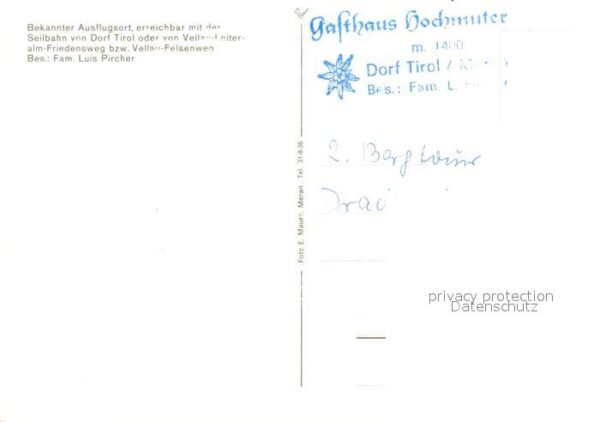 Bekannter Ausflugsort, erreichbar mit der
Seilbahn von Dorf Tirol oder von Vellau-Leiter-
alm-Friedensweg bzw. Vellau-Felsenweg
Bes.: Fam. Luis Pircher
Foto E. Mauer, Meran, Tel. 21-8-36
Gasthaus Hochmuter
m. 1400
Dorf Tirol /
Bes.: Fam. L.
2. Bergtour
privacy protection
Datenschutz